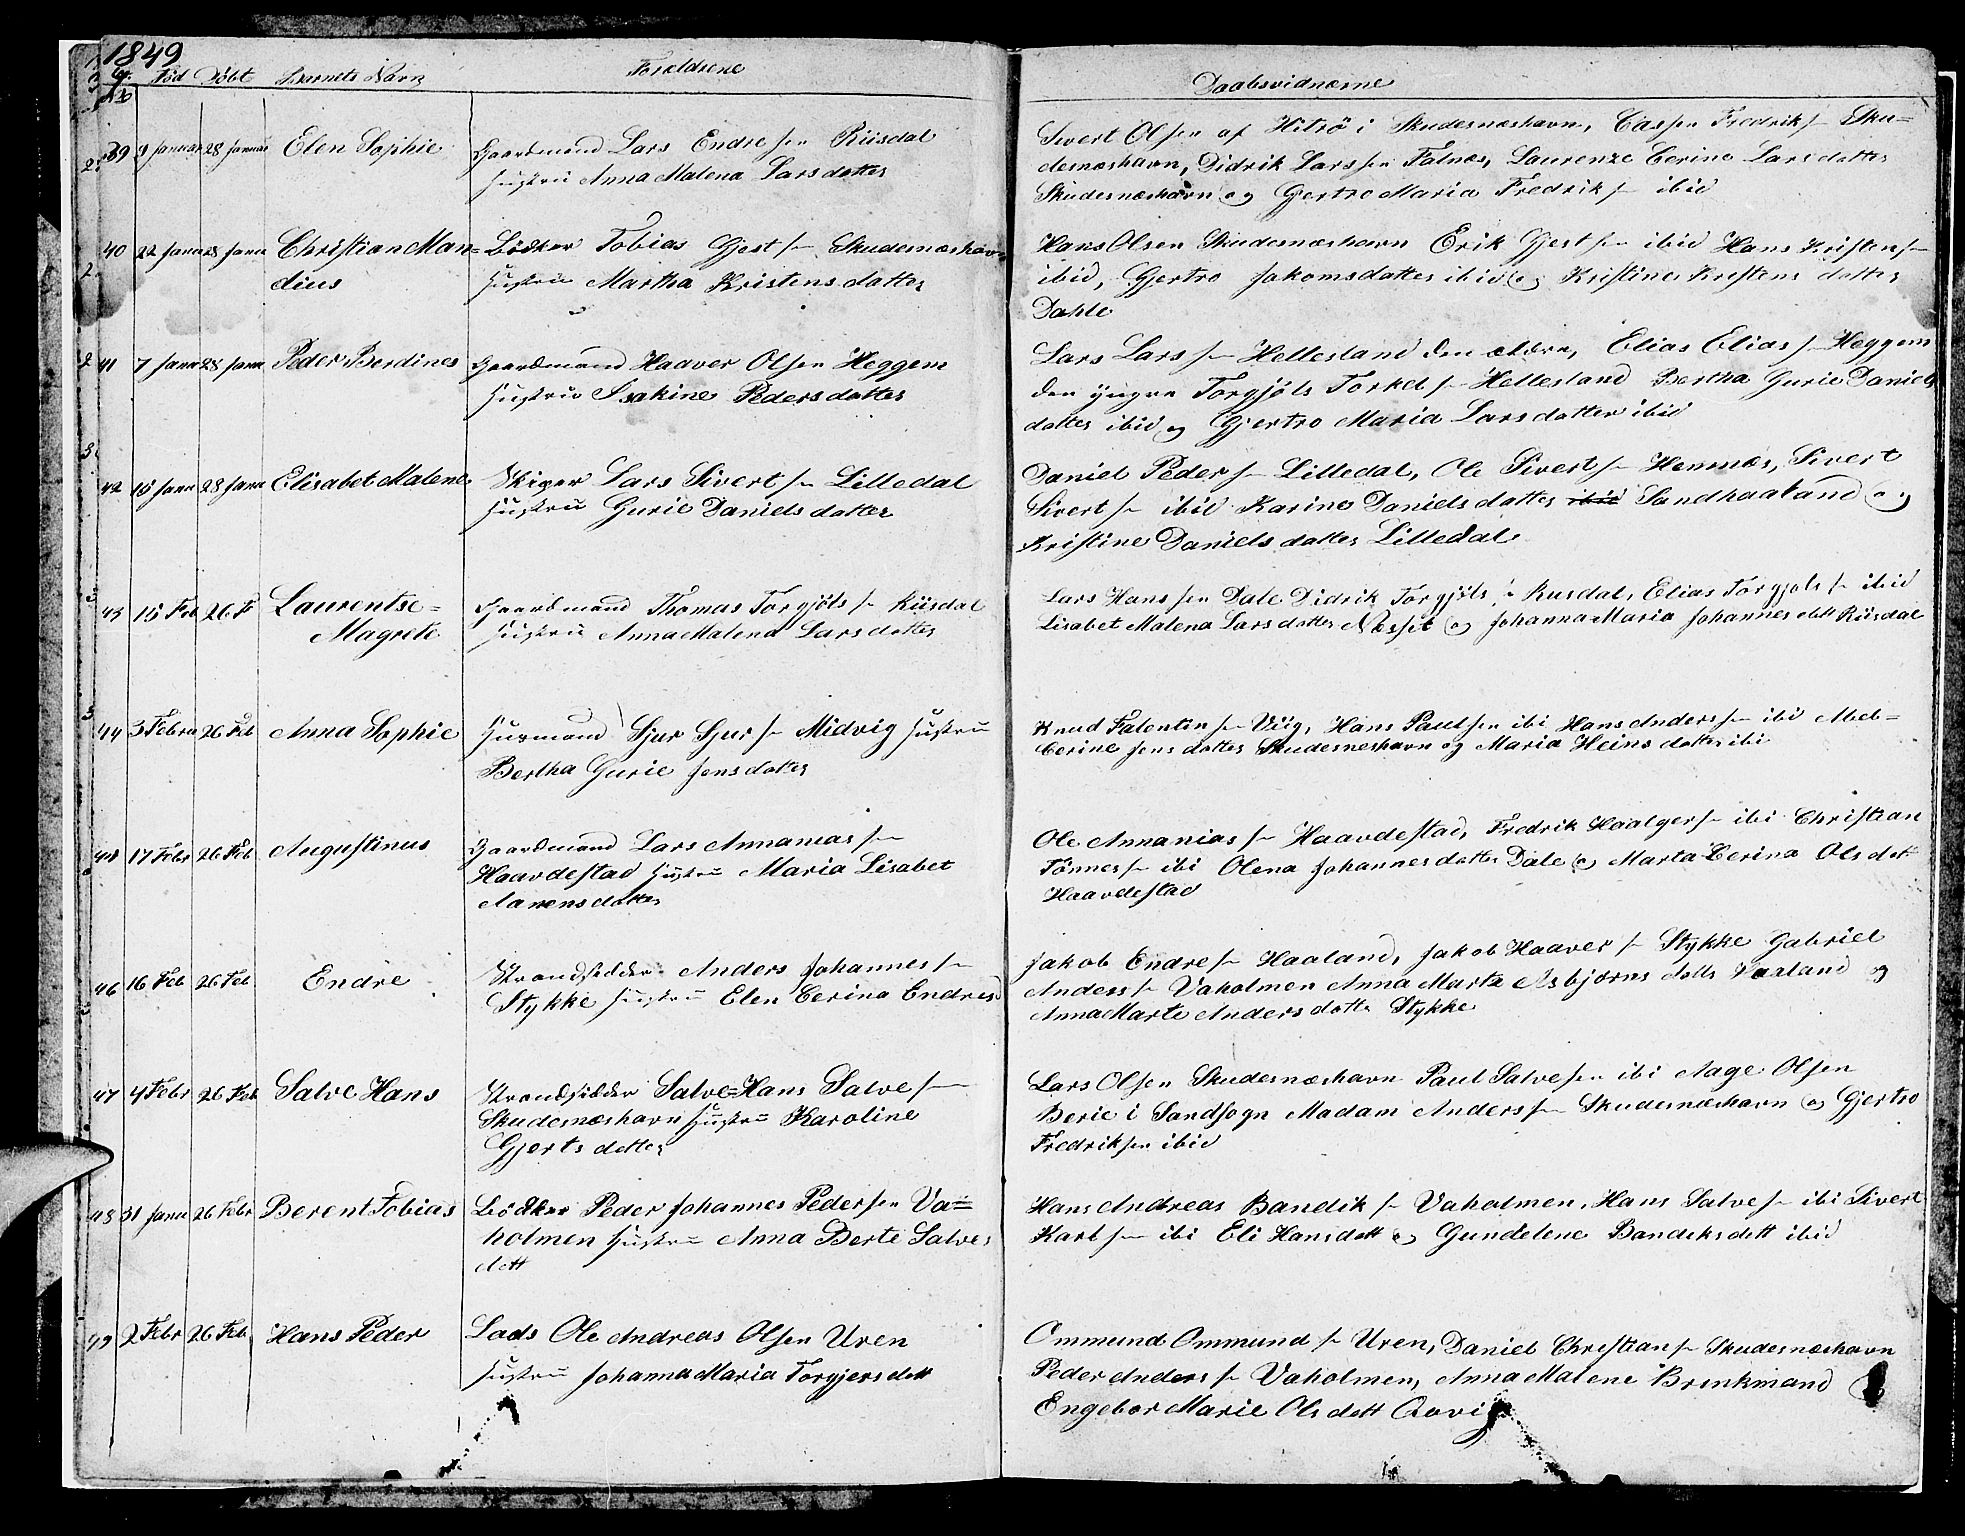 1849
Fød Døbt Barnets Navn Forældrene Daabsvidnerne
39 9 Januar 28 Januar Elen Sophie Gaardmand Lars Endresen Riisdal
Hustru Anna Malena Larsdatter
Sivert Olsen af Hitrö i Skudesnæshavn, Cassen Fredriks– Sku=
desnæshavn, Didrik Larssen Falnæs, Laurenze Cerine Larsdatter
Skudesnæshavn og Gjertro Maria Fredriks– ibid
40 22 Janu 28 Janu Christian Man=
dius
Bödker Tobias Gjests– Skudesnæshavn
Hustru Martha Kristensdatter
Hans Olsen Skudesnæshavn Erik Gjestsen ibid Hans Kristens–
ibid, Gjertro Jakomsdatter ibid og Kristine Kristensdatter
Dahle
41 7 Janu 28 Janu Peder Berdines Gaardmand Haaver Olsen Heggem
Hustru Isakine Pedersdatter
Lars Lars– Hellesland den ældre, Elias Elias– Heggem
den yngre Torgjöls Torkels– Hellesland Bertha Gurie Daniels
datter ibid og Gjertro Maria Larsdatter ibid
42 15 Janu 28 Janu Elisabet Malene Skiper Lars Siverts– Lilledal
Hustru Gurie Danielsdatter
Daniel Peders– Lilledal, Ole Siverts– Hemnæs, Sivert
Siverts– ibid Karine Danielsdatter ibid Sandhaaland og
Kristine Danielsdatter Lilledal
43 15 Feb 26 F Laurentse=
Magrete
Gaardmand Thomas Torgjöls– Riisdal
Hustru Anna Malena Larsdatter
Lars Hanssen Dale Didrik Torgjöls– Rusdal, Elias Torgjols– ibid
Lisabet Malena Larsdatter Næsset og Johanna Maria Johannesdatt Riisdal
44 3 Febru 26 Feb Anna Sophie Husmand Sjur Sjurs– Midvig Hustru
Bertha Gurie Jensdatter
Knud Falentins– Viig, Hans Paulsen ibi Hans Anders– ibi Mel=
Cerine Jensdatter Skudesneshavn og Maria Heinsdatter ibi
17 Febr 26 Feb Augustinus Gaardmand Lars Annanias–
Haavdestad Hustru Maria Lisabet
Aanensdatter
Ole Annanias– Haavdestad, Fredrik Haalgers– ibi Christian
Tönness– ibi Olena Johannesdatter Dale og Marta Cerina Olsdatt
Haavdestad
46 16 Feb 26 Feb Endre Strandsidder Anders Johannes–
Stykke Hustru Elen Cerina Endresd
Jakob Endres– Haaland, Jakob Haavers– Stykke Gabriel
Anders– Vaholmen Anna Marta Asbjörnsdatt Vaaland og
Anna Marte Andersdatte Stykke
47 4 Febr 26 Feb Salve Hans Strandsidder Salve=Hans Salves–
Skudesnæshavn Hustru Karoline
Gjertsdatter
Lars Olsen Skudesnæshavn Paul Salvesen ibi Aage Olsen
Berie i Sandsogn Madam Anderss– Skudesnæshavn og Gjertro
Fredriksen ibid
48 31 Janu 26 Febr Berent Tobias Bödker Peder Johannes Pedersen Va=
holmen Hustru Anna Berte Salves
dett
Hans Andreas Bandik– Vaholmen, Hans Salves– ibi Sivert
Karls– ibi Eli Hansdatt og Gundelene Bandiksdett ibid
49 2 Febr 26 Feb Hans Peder Lods Ole Andreas Olsen Uren
Hustru Johanna Maria Torgjersdett
Ommund Ommunds– Uren, Daniel Christians– Skudesnæshavn
Peder Anders– Vaholmen, Anna Malene Brinkmand
Engebor Marie Olsdett Aavig